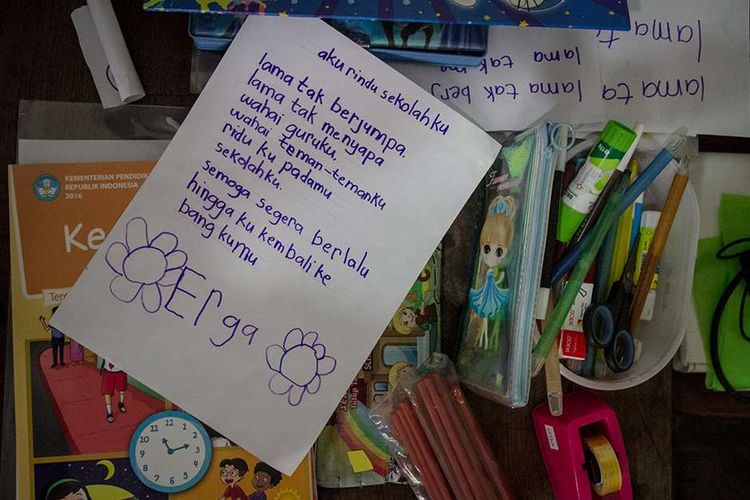 aku rindu sekolahku
lama tak berjumpa.
lama tak menyapa
wahai guruku,
wahai teman-temanku
ridu ku padamu
sekolahku.
semoga segera berlalu
hingga ku kembali ke
bangkumu
Erga
KEMENTERIAN PENDIDIK
REPUBLIK INDONESIA
2016
Ke
lama ta
lama tak
lama ta
lama tak berj